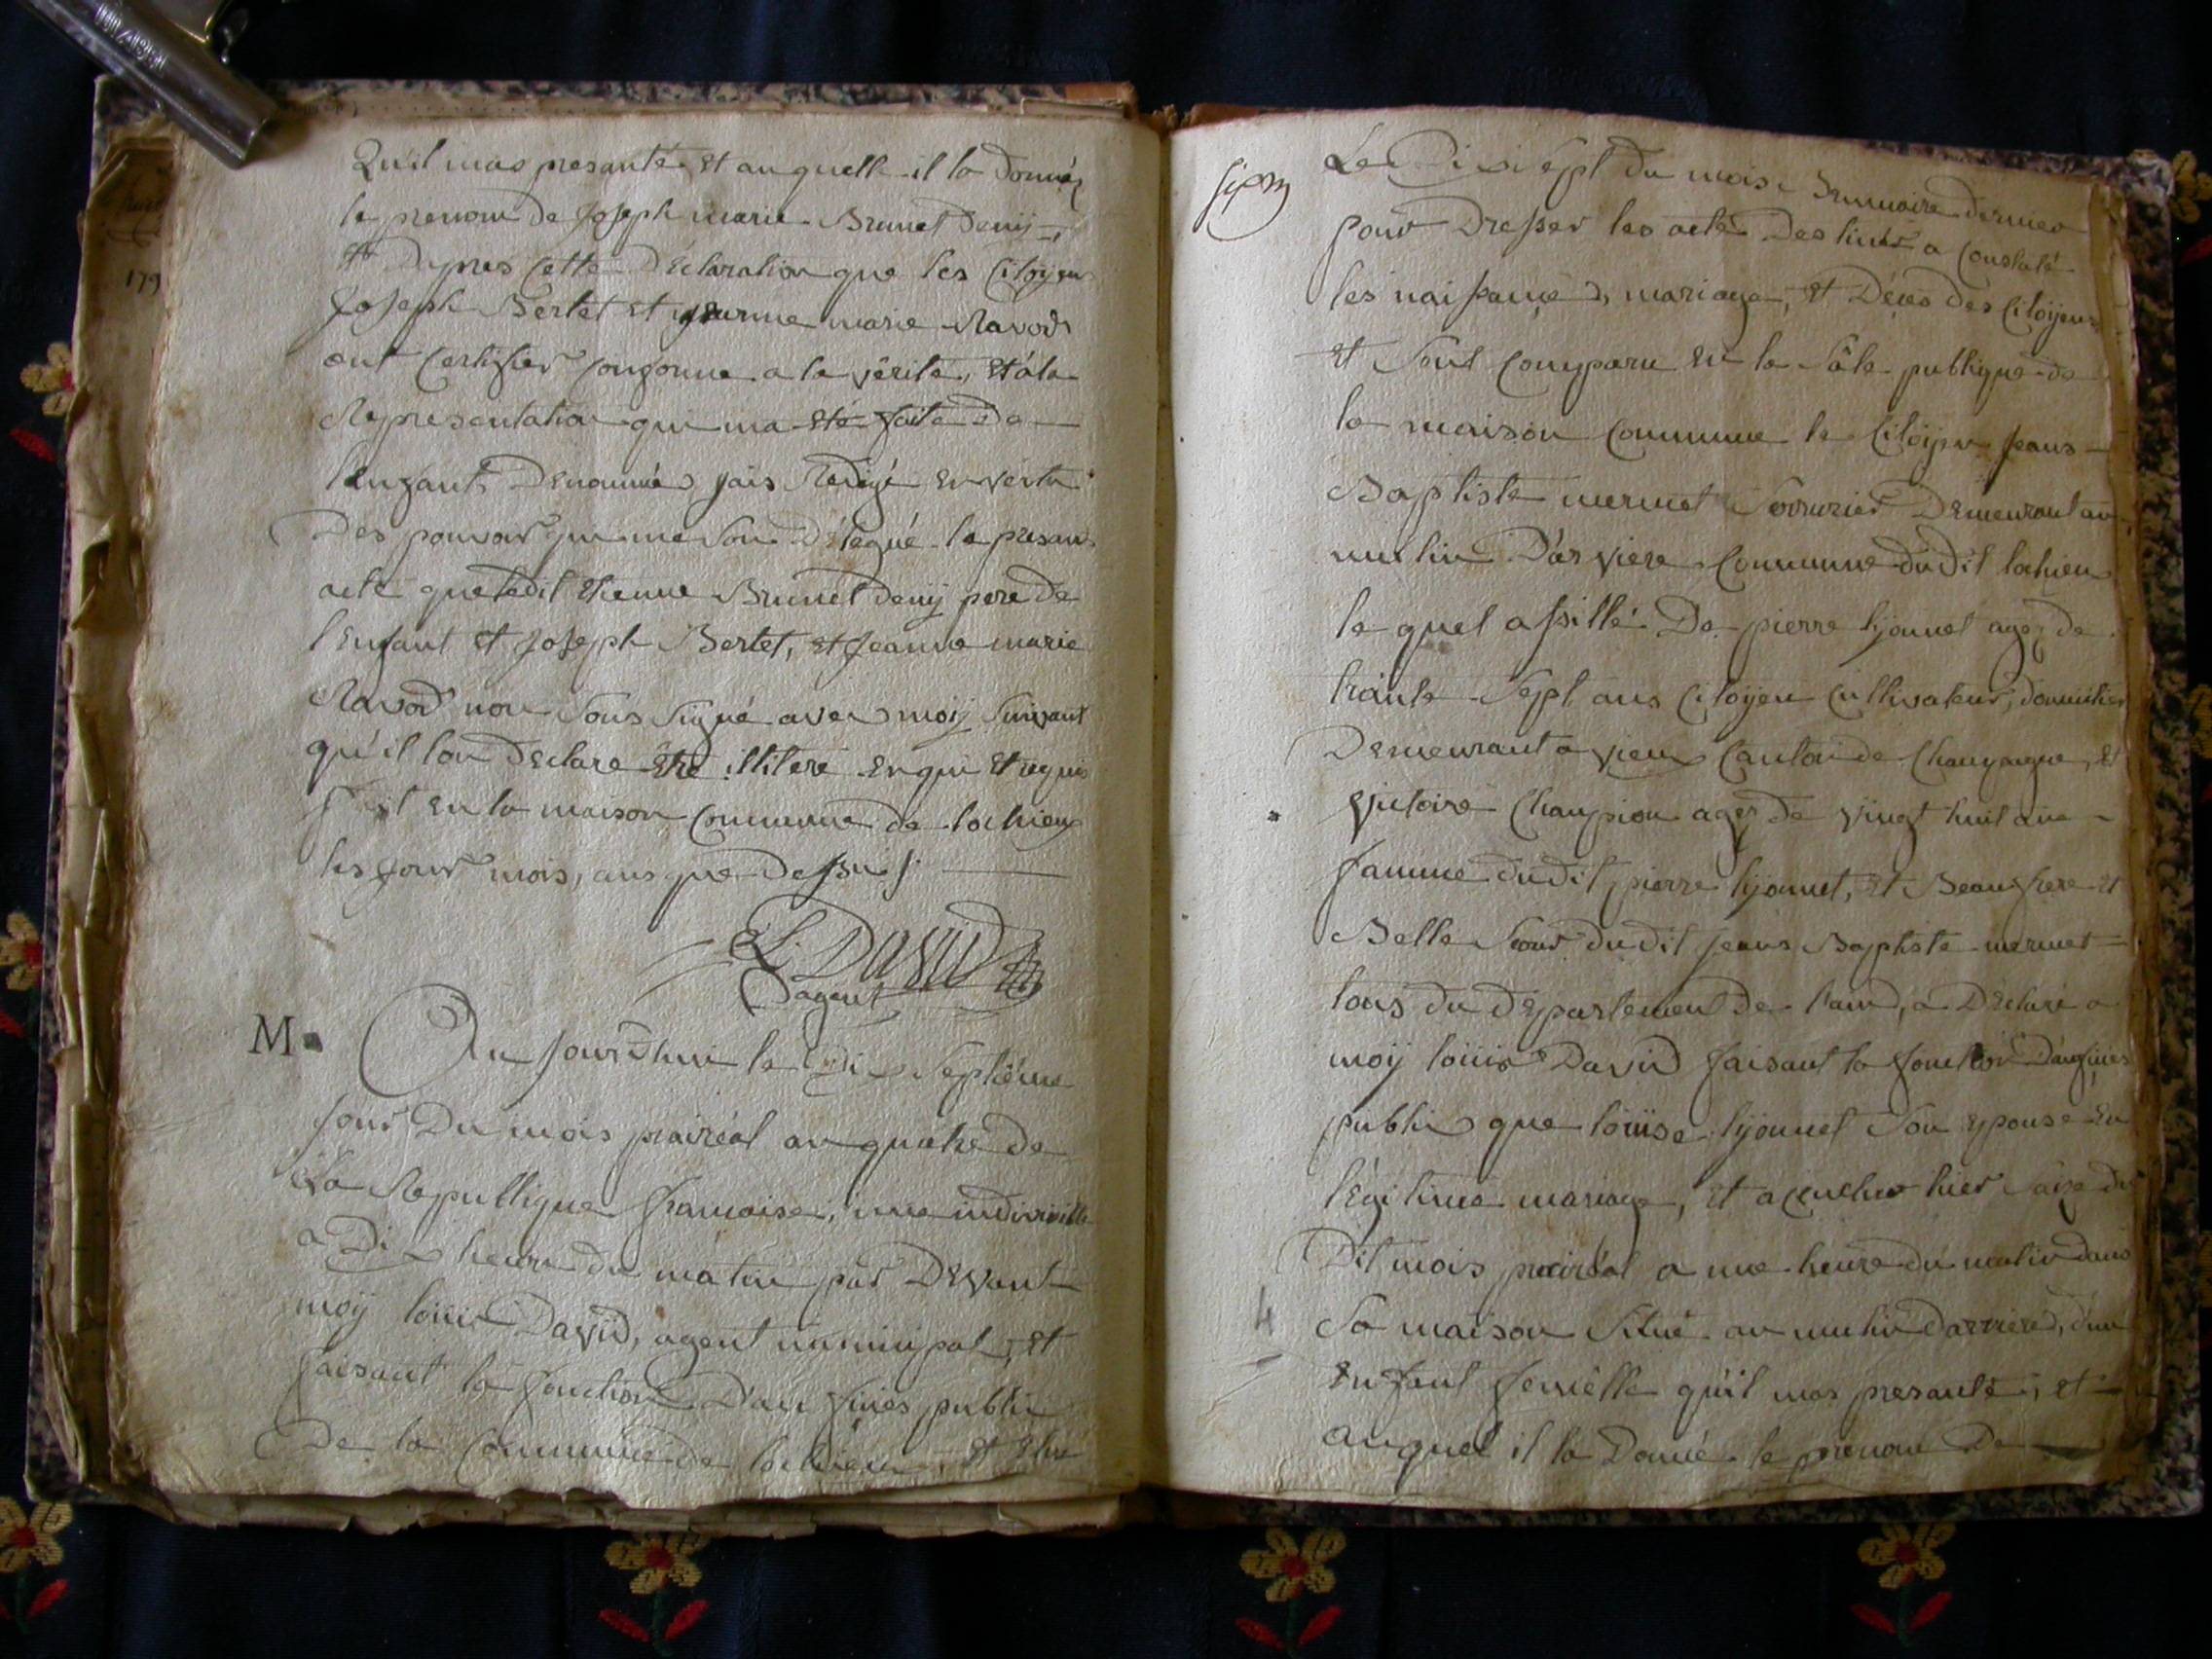 Qu'il mas presanté et au quelle il la donnéz
le prenom de Joseph marie Brunet Denij,
Et Dypres Cette Déclaration que les Citoyens
Joseph Bertet et jeanne marie Ravod
ont Certifier Confonne a la vérite, et á la
Representation qui ma eté faite de
l'enfant Denommés jais Redigé en vertu
Des pouvoir qui me Son Délegué le presans
acte que ledit Etienne Brunet denij pere de
l'Enfant et Joseph Bertet, et Jeanne marie
Ravod non Sous Signé avec moij Suivant
qu'il lon Declare etre illitere enqui et requis
fait en la maison Commune de lochieux
les jour mois, ans que Dessus
L. DAVID
agent
M. Au Jourd'hui le Dix Septiême
jour Du mois prairéal an quatre de
La Republique francoise, une indivisible
a Dix heure du matin par Devant
moij loüis David, agent municipal, et
faisant la fonction D'au ficies public
De la Commune de lochieu, et Elue
Le Dixi sept du mois Brumaire dernier
pour Dresser les acte Destinér a Constaté
les naissances, mariage, et Déces des Citoijens
et Sont Comparu en la Sâle publique de
la maison Commune le Citoijen Jeans
Baptiste mermet Serrurier Demeurant au
mulin D'arviere Commune dudit lochieu
le quel assisté De pierre lijonnet agez de
trainte Sept ans Citoijen Cultivateur, domicilier
Demeurant a vieux Canton de Champagne, et
victoire Champion agez de vingt huit ans
famme dudit pierre lijonnet, et Beaufrere et
Belle Seour dudit jeans Baptiste mermet
tous du département de l'aind, a Déclaré a
moij loüis David faisant la fonction D'auficies
public que loüise lijonnet Son epouse en
légitime mariage, et acoucher hier Saize du
Dit mois prairéal a une heure du matin dans
Sa maison Situé au mulin darviere, d'un
enfant femélle qu'il mas presanté, et
au quel il la Donné le prenom De
4